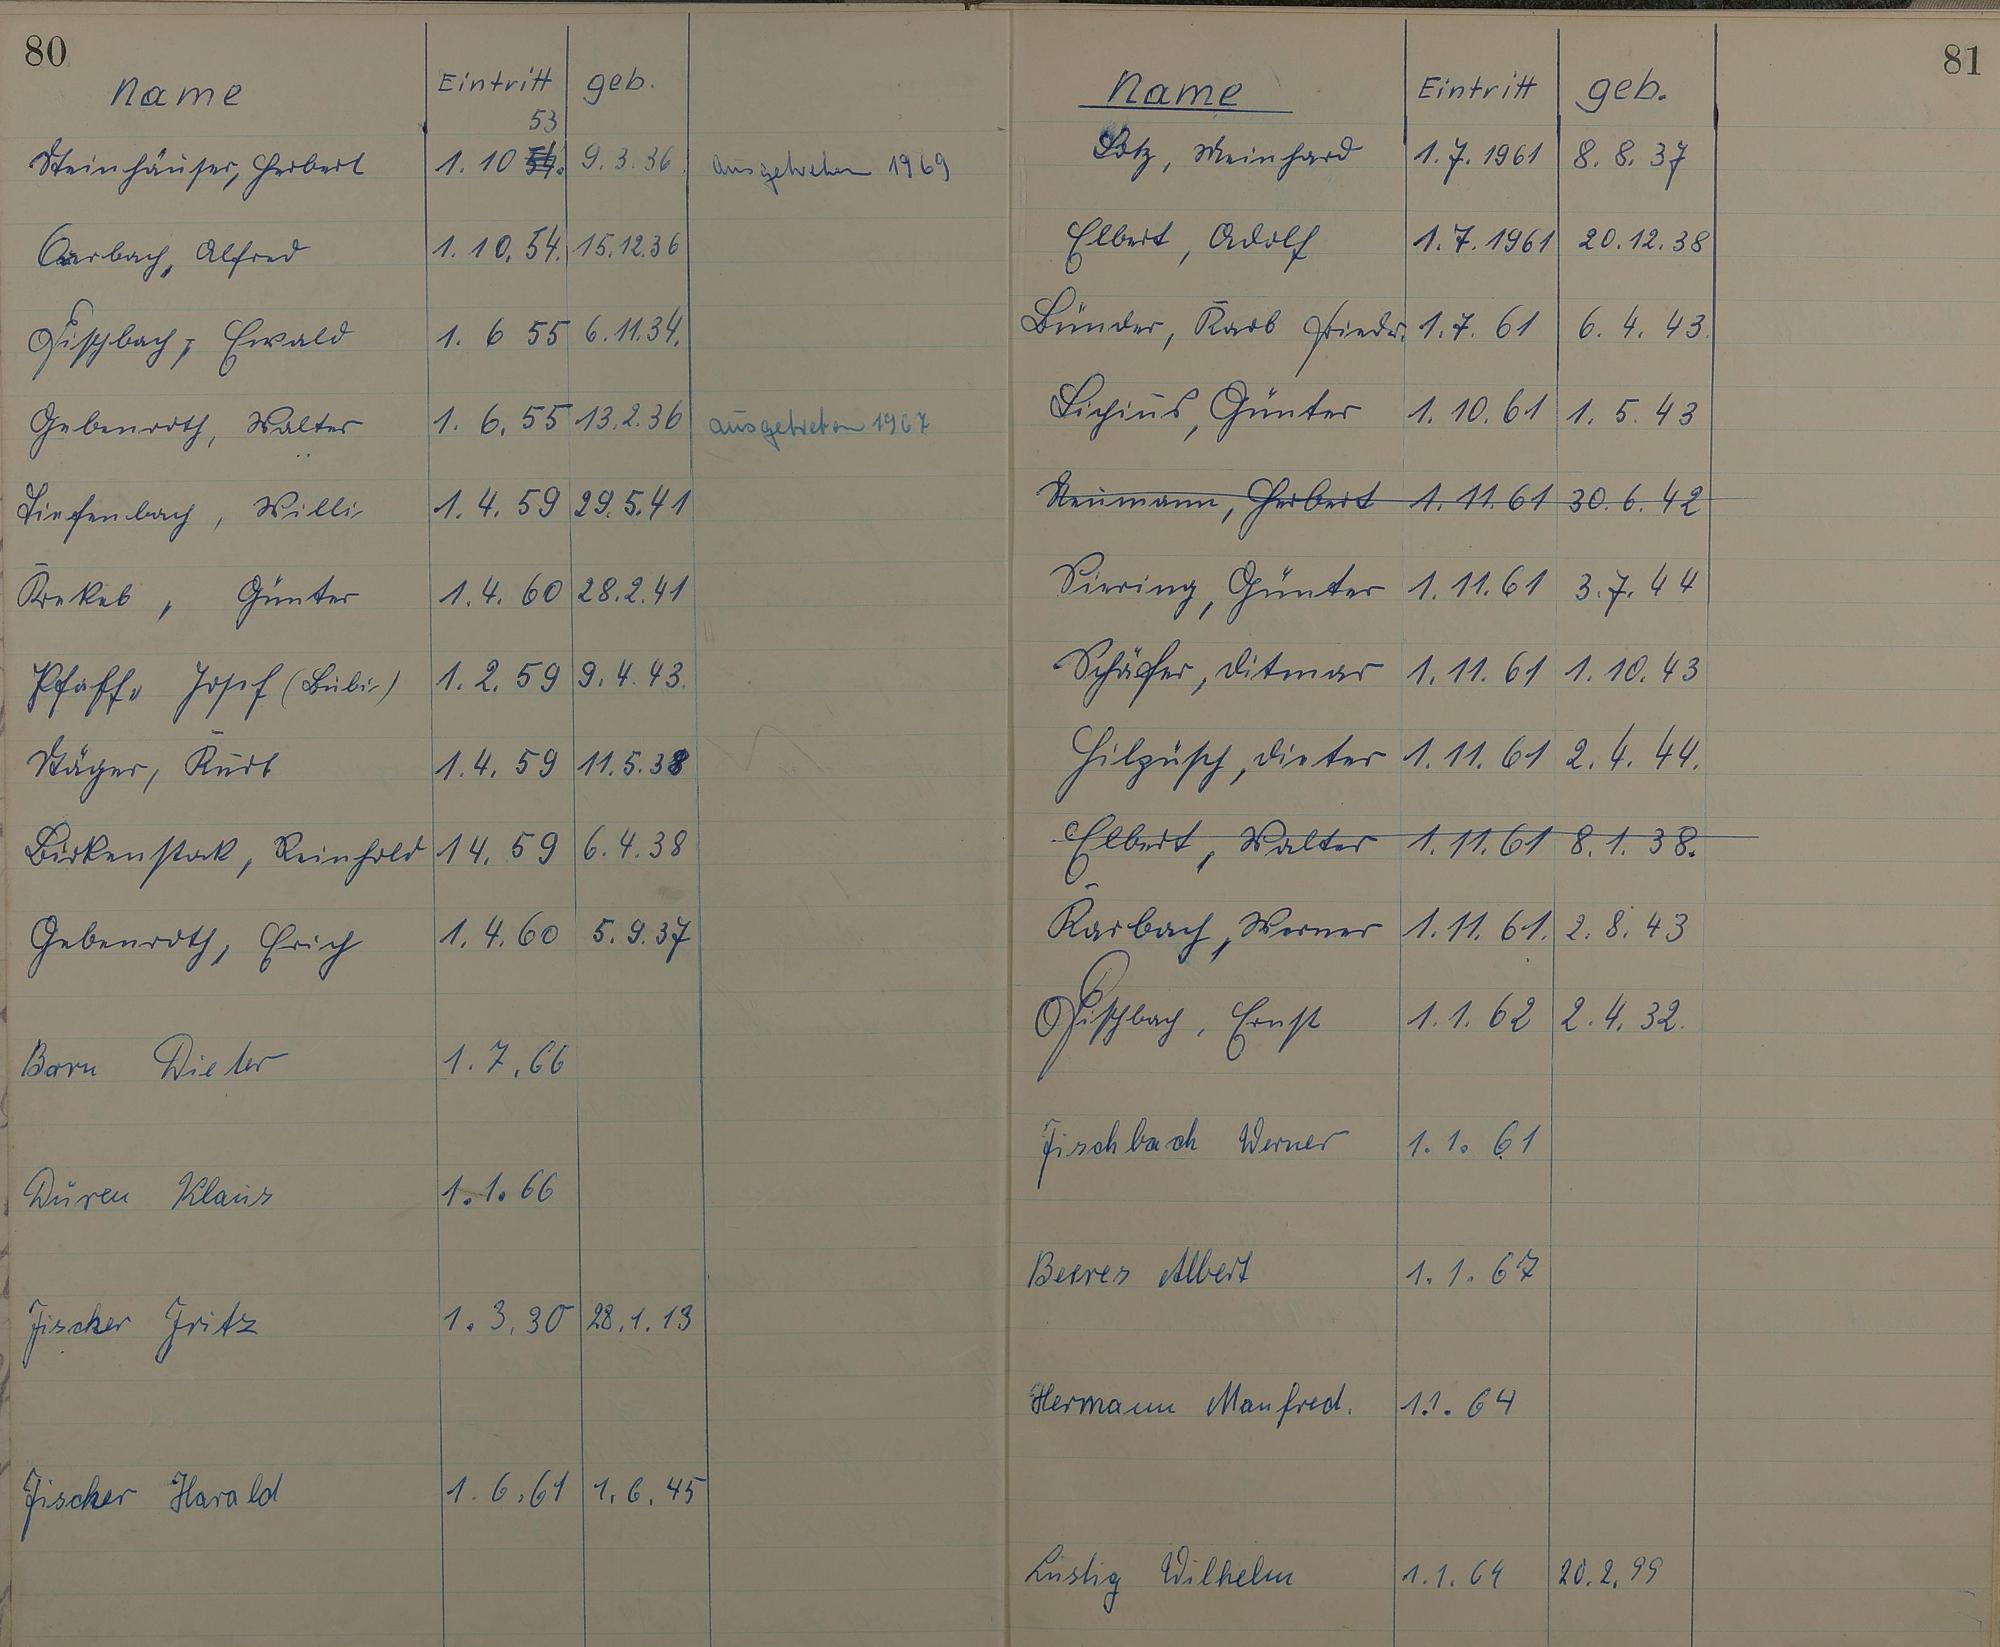 80
Name Eintritt geb.
53
Steinhäuser, Herbert 1. 10 54. 9. 3. 36 ausgetreten 1969
Alfred 1. 10. 54. 15.12.36
Fischbach, Ewald 1. 6 55 6. 11. 34.
Gebenroth, Walter 1. 6. 55 13. 2. 36 ausgetreten 1967
Tiefenbach, Willi 1. 4. 59 29. 5. 41
Krekel, Günter 1. 4. 60 28. 2. 41
Pfaff, Josef (Bubi) 1. 2. 59 9. 4. 43.
Stäger, Kurt 1. 4. 59 11. 5. 38
Birkenstock, Reinhold 1 4. 59 6. 4. 38
Gebenroth, Erich 1. 4. 60 5. 9. 37
Born Dieter 1. 7. 66
Düren Klaus 1. 1. 66
Fischer Fritz 1. 3. 30 28. 1. 13
Fischer Harald 1. 6. 61 1. 6. 45
81
Name Eintritt geb.
Lotz, Meinhard 1. 7. 1961 8. 8. 37
Elbert, Adolf 1. 7. 1961 20. 12. 38
Bünder, Karl Friedr. 1. 7. 61 6. 4. 43.
Licius, Günter 1. 10. 61 1. 5. 43
Neumann, Herbert 1. 11. 61 30. 6. 42
Siering, Günter 1. 11. 61 3. 7. 44
Schäfer, Ditmar 1. 11. 61 1. 10. 43
Hilpüsch, Dieter 1. 11. 61 2. 4. 44.
Elbert, Walter 1. 11. 61 8. 1. 38.
Karbach, Werner 1. 11. 61. 2. 8. 43
Fischbach, Ernst 1. 1. 62 2. 4. 32.
Fischbach Werner 1. 1. 61
Beeres Albert 1. 1. 67
Hermann Manfred. 1.1. 64
Lustig Wilhelm 1. 1. 64 20. 2. 99